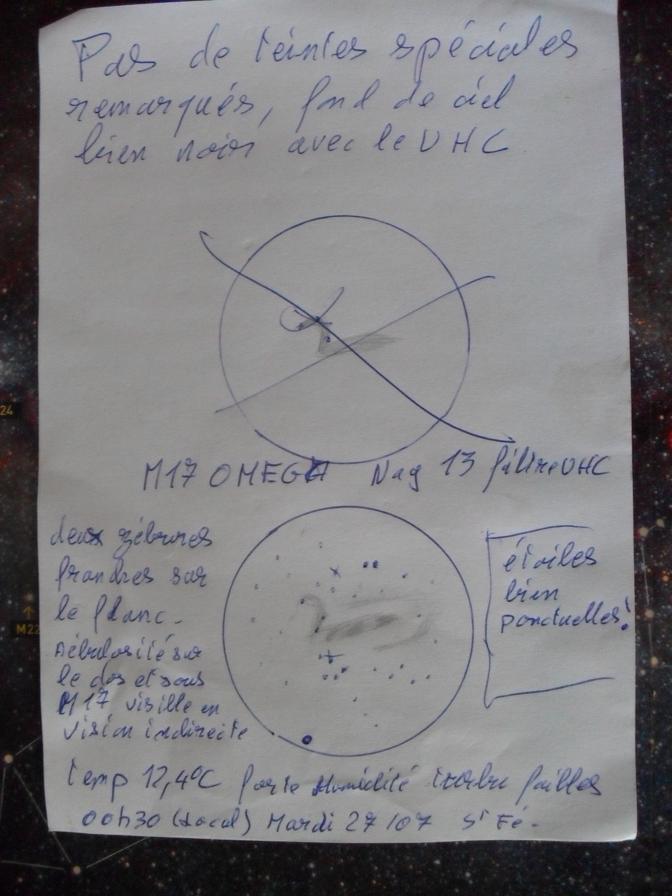 Pas de teintes spéciales
remarqués, fond de ciel
bien noir avec le UHC
24
M17 OMEGA Nag 13 filtre UHC
deux zébrures
grandes sur
le flanc.
Nébulosité sur
le dos et sous
M17 visible en
vision indirecte
étoiles
bien
ponctuelles!
M22
Temp 12,4°C forte Humidité failles
00h30 (Local) Mardi 27/07 St Fé.